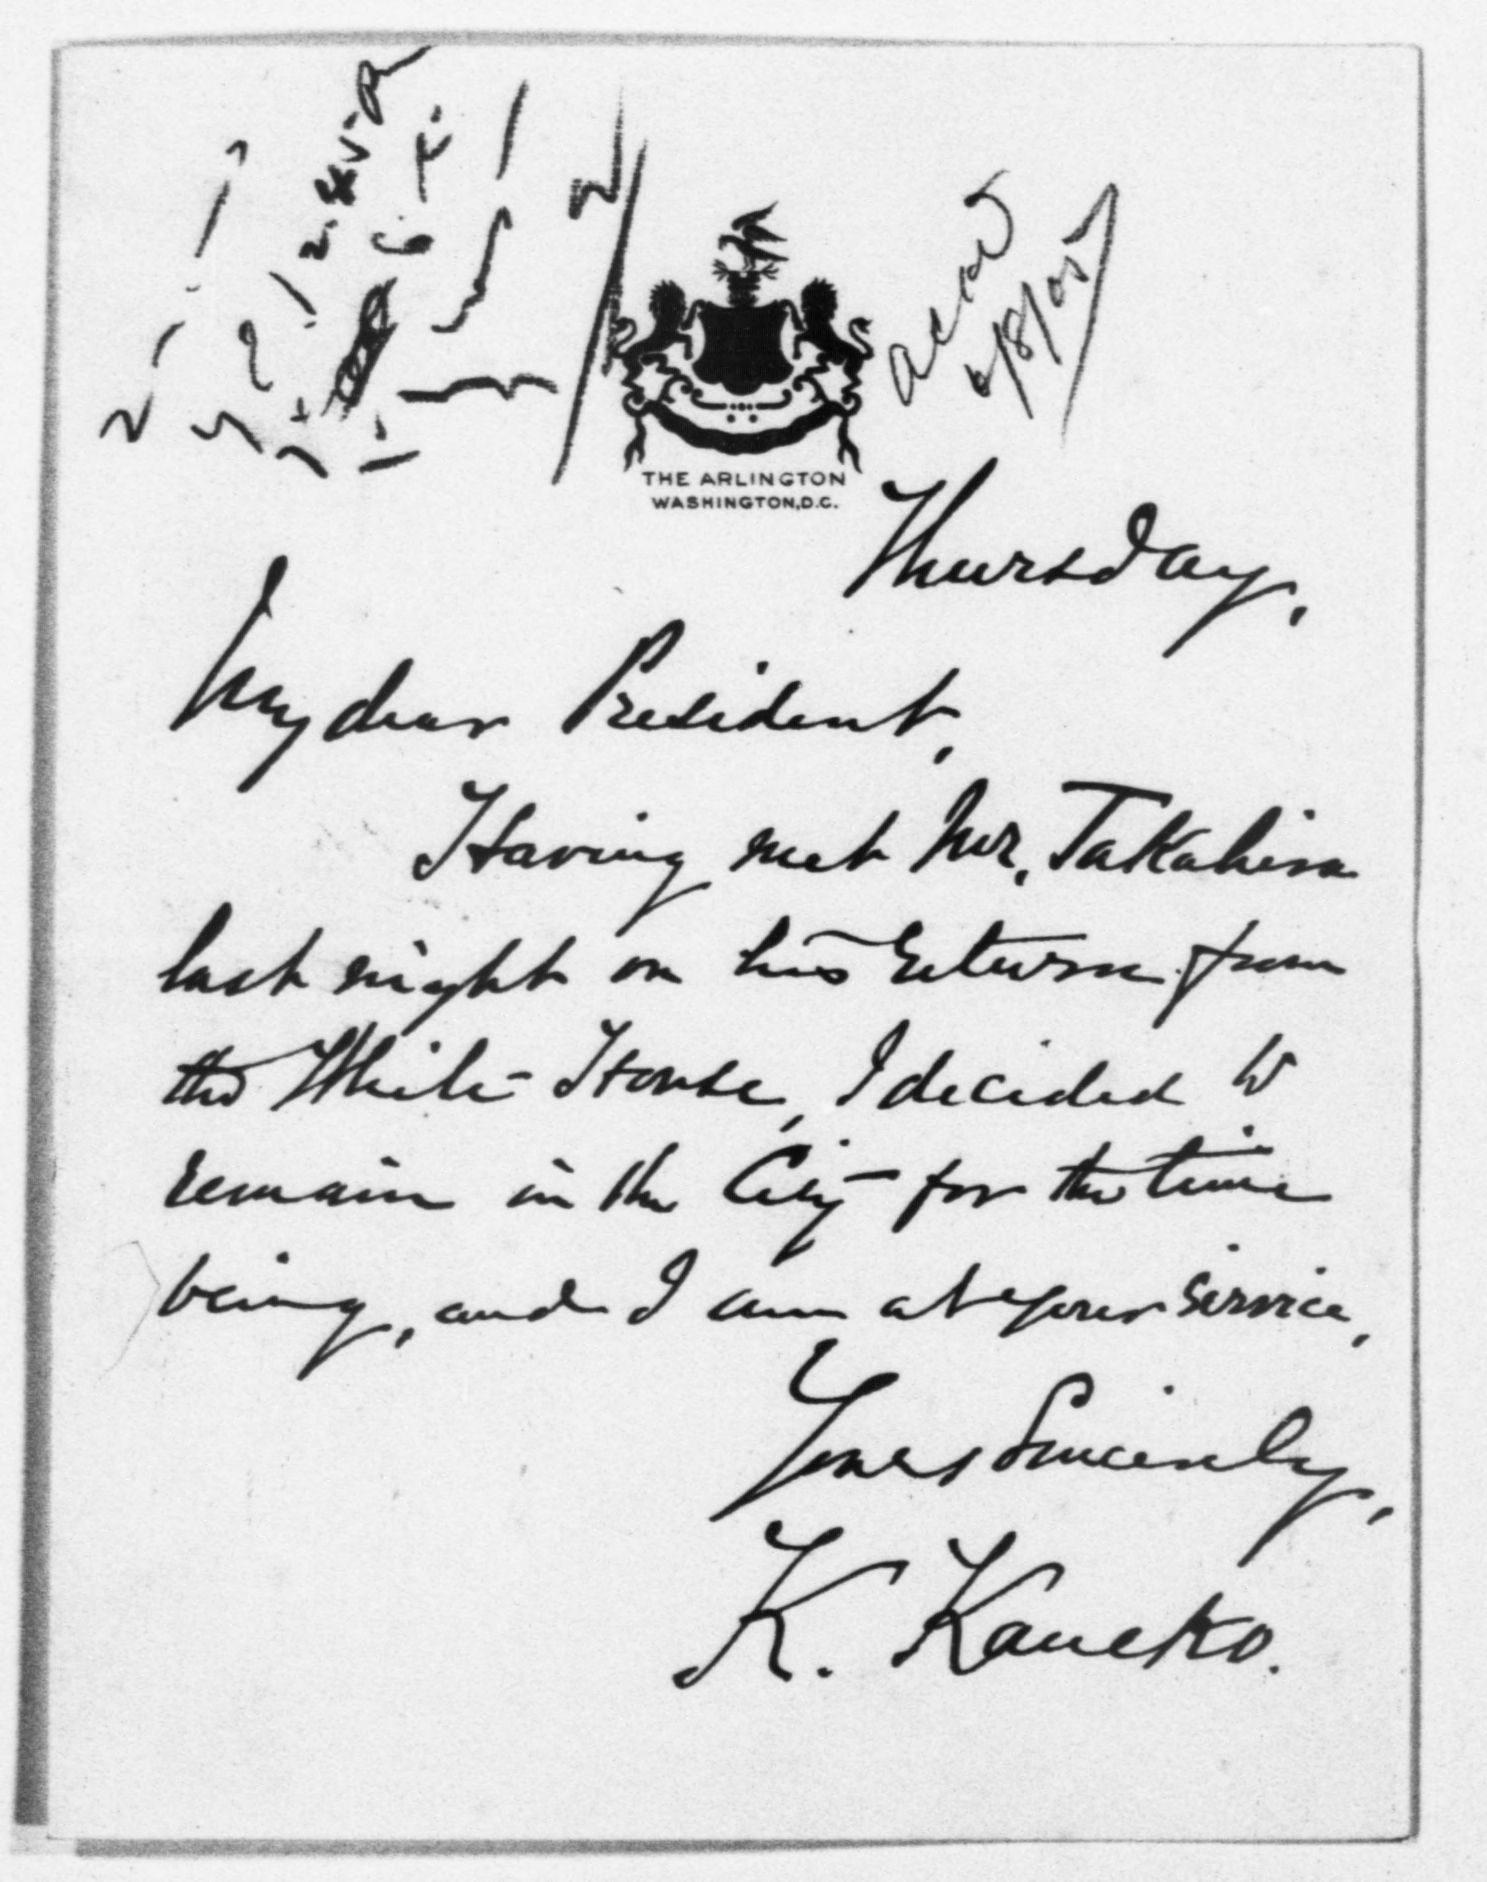 ackd
6/8/05
THE ARLINGTON
WASHINGTON, D.C.
Thursday,
My dear President,
Having met Mr. Takahira
last night on his return from
the White House, I decided to
remain in the City for the time
being, and I am at your service,
Yours Sincerely,
K. Kaneko.